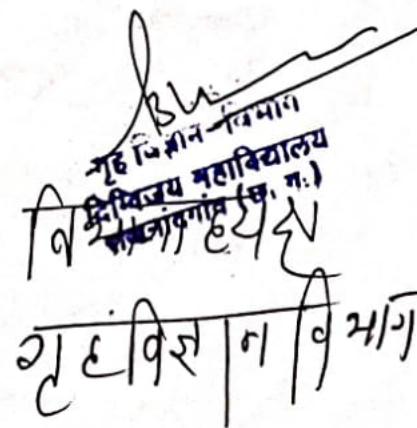 गृह विज्ञान-विभाग
दिग्विजय महाविद्यालय
राजनांदगांव (छ. ग.)
विभागाध्यक्ष
गृहविज्ञान विभाग